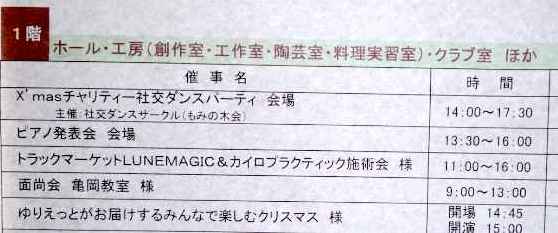 1階
ホール・工房(創作室・工作室・陶芸室・料理実習室)・クラブ室 ほか
催事名 時間
X'masチャリティー社交ダンスパーティ 会場
主催:社交ダンスサークル(もみの木会)
14:00～17:30
ピアノ発表会 会場 13:30～16:00
トラックマーケットLUNEMAGIC＆カイロプラクティック施術会 様 11:00～16:00
面尚会 亀岡教室 様 9:00～13:00
ゆりえっとがお届けするみんなで楽しむクリスマス 様
開場 14:45
開演 15:00